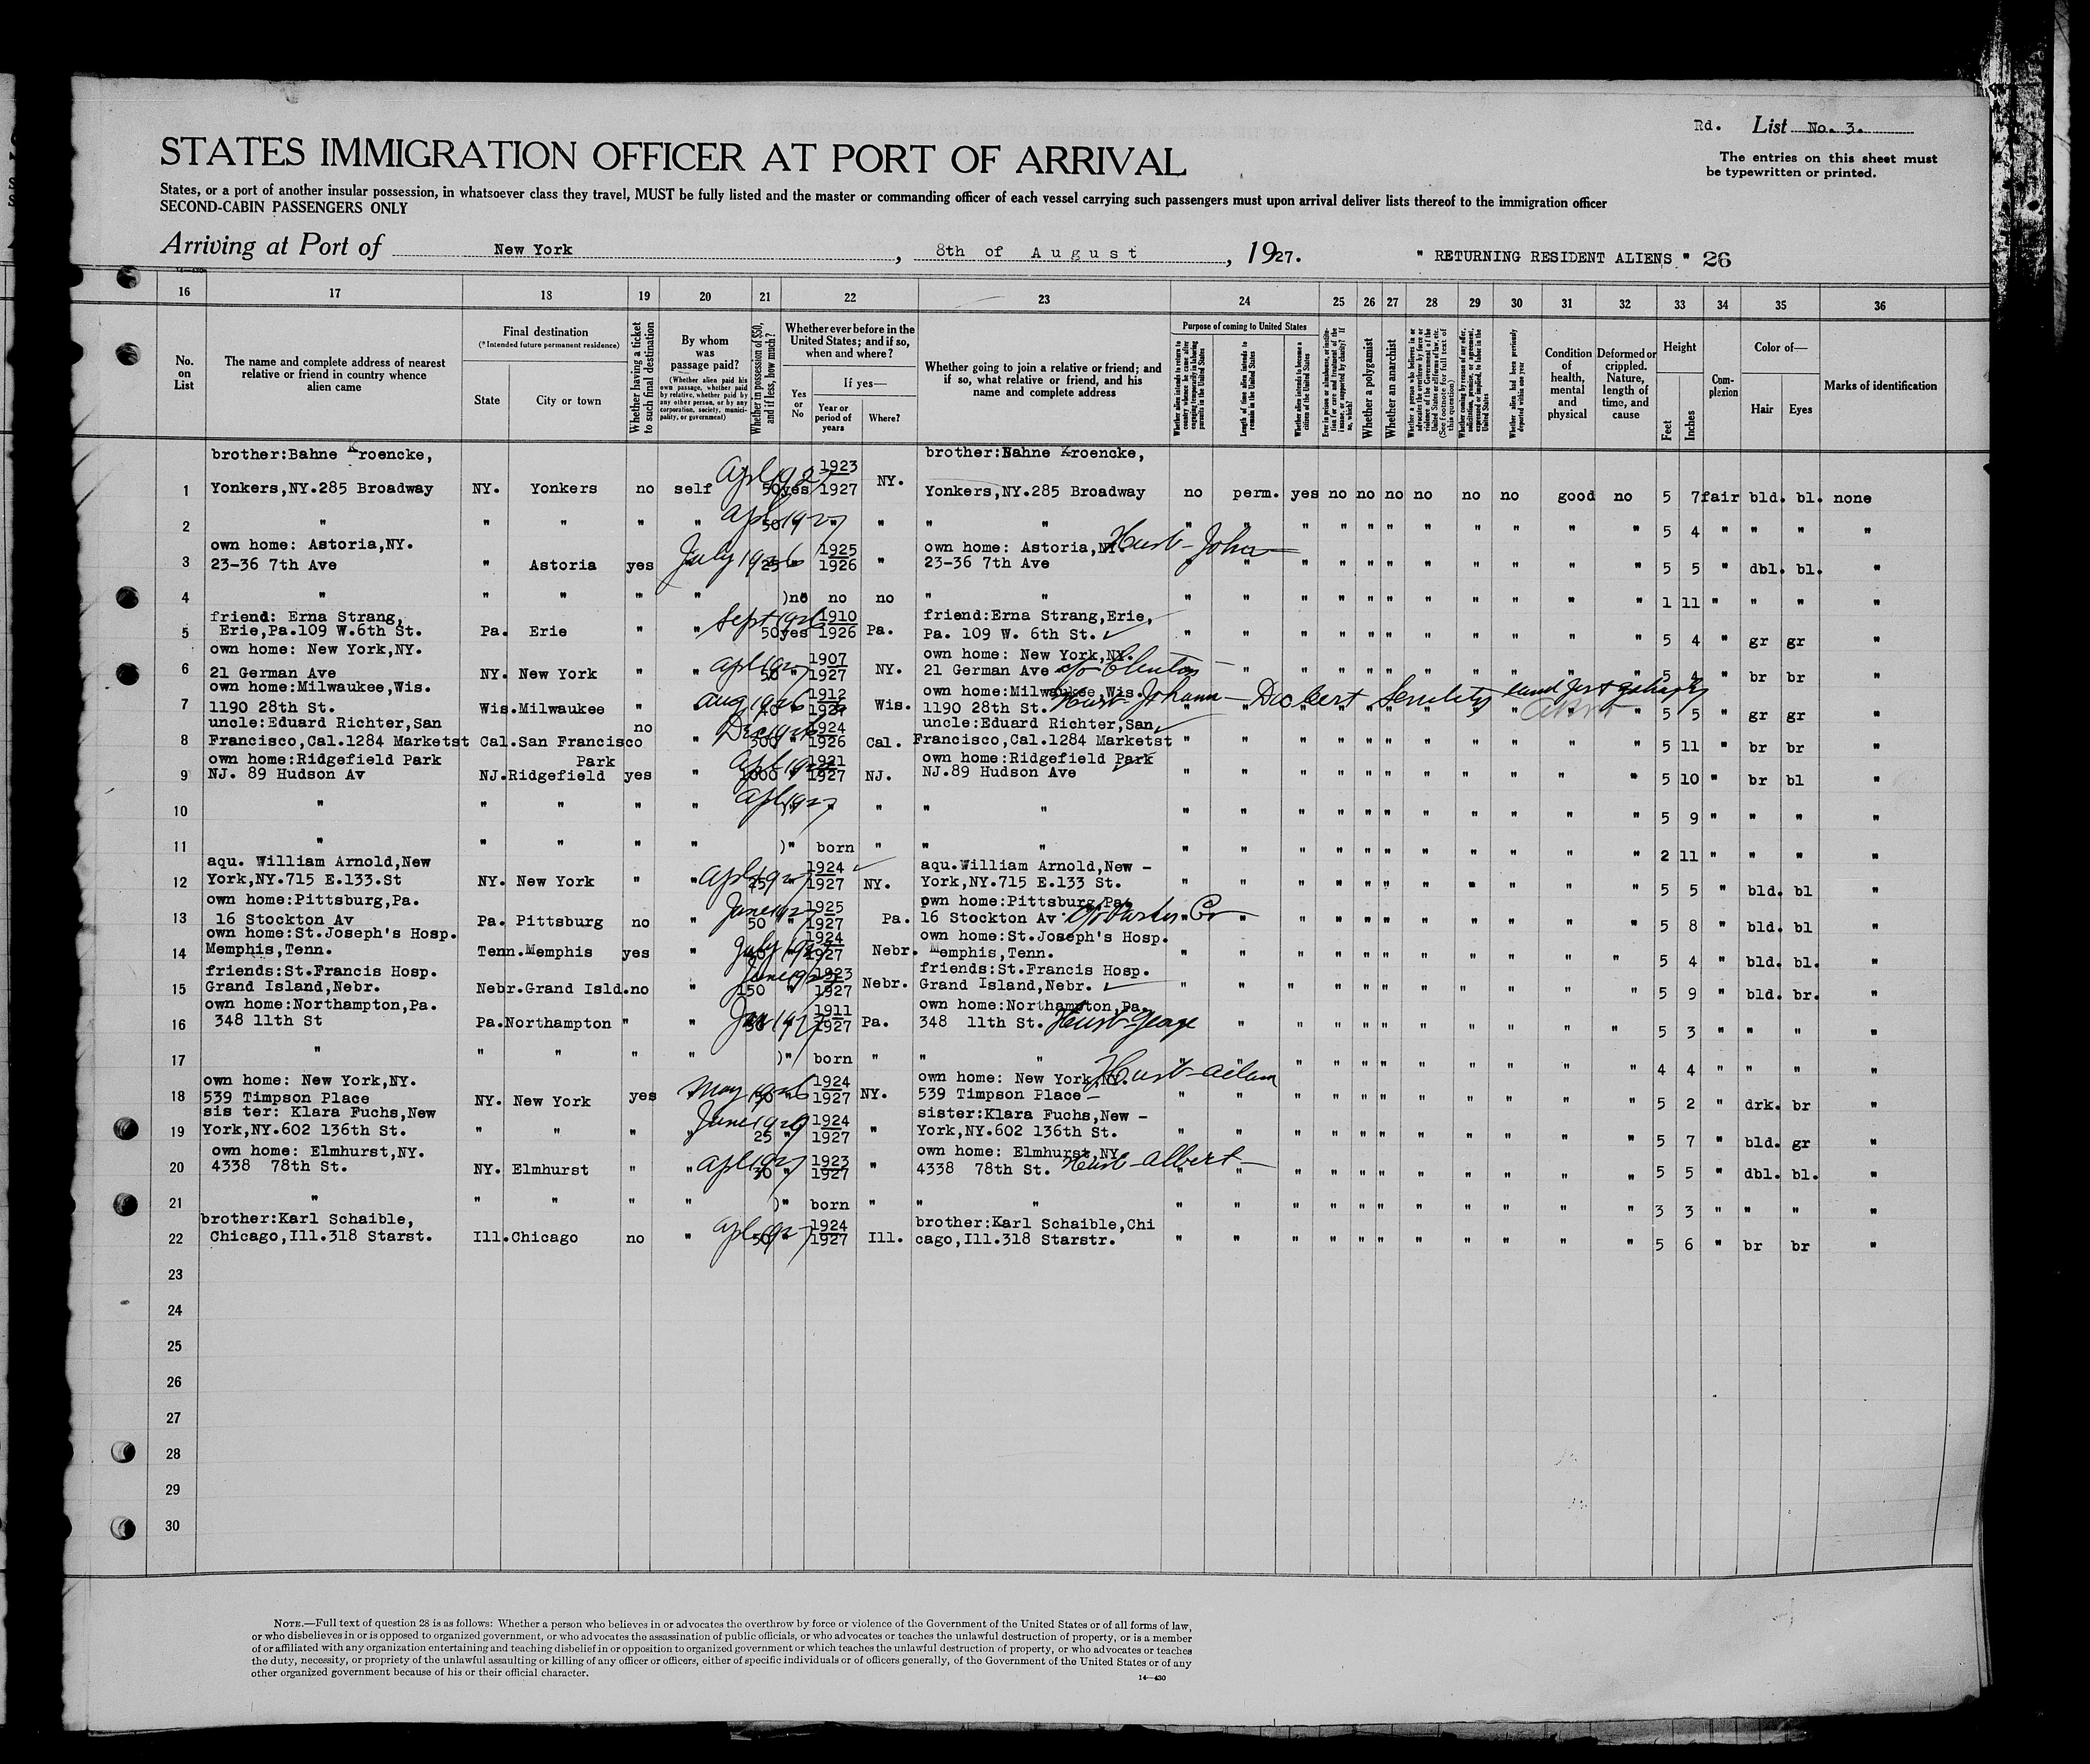 Rd. List No. 3.
STATES IMMIGRATION OFFICER AT PORT OF ARRIVAL
The entries on this sheet must
be typewritten or printed.
States, or a port of another insular possession, in whatsoever class they travel, MUST be fully listed and the master or commanding officer of each vessel carrying such passengers must upon arrival deliver lists thereof to the immigration officer
SECOND-CABIN PASSENGERS ONLY
Arriving at Port of New York, 8th of August, 1927. " RETURNING RESIDENT ALIENS " 26
16 17 18 19 20 21 22 23 24 25 26 27 28 29 30 31 32 33 34 35 36
No. on List
The name and complete address of nearest relative or friend in country whence alien came
Final destination
(*Intended future permanent residence)
State
City or town
Whether having a ticket to such final destination
By whom was passage paid?
(Whether alien paid his own passage, whether paid by relative, whether paid by any other person, or by any corporation, society, municipality, or government)
Whether in possession of $50, and if less, how much?
Whether ever before in the United States; and if so, when and where?
Yes or No
If yes—
Year or period of years
Where?
Whether going to join a relative or friend; and if so, what relative or friend, and his name and complete address
Purpose of coming to United States
Length of time alien intends to remain in the United States
Whether alien intends to become a citizen of the United States
Whether a polygamist
Whether an anarchist
Condition of health, mental and physical
Deformed or crippled. Nature, length of time, and cause
Height
Feet
Inches
Complexion
Color of—
Hair
Eyes
Marks of identification
brother:Bahne Kroencke, 1923 brother:Bahne Kroencke,
1 Yonkers,NY.285 Broadway NY. Yonkers no self 50 yes 1927 NY. Yonkers,NY.285 Broadway no perm. yes no no no no no no good no 5 7 fair bld. bl. none
Apl 1927
2 " " " " " 50 " " " " " " " " " " " " " " " " " 5 4 " " " "
Apl 1927
own home: Astoria,NY. 1925 own home: Astoria,NY. Husb - John
3 23-36 7th Ave " Astoria yes " 25 1926 " 23-36 7th Ave " " " " " " " " " " " 5 5 " dbl. bl. "
July 1926
4 " " " " " )no no no " " " " " " " " " " " " " 1 11 " " " "
friend: Erna Strang, 1910 friend:Erna Strang,Erie,
5 Erie,Pa.109 W.6th St. Pa. Erie " " 50 yes 1926 Pa. Pa. 109 W. 6th St. " " " " " " " " " " " 5 4 " gr gr "
Sept 1926
own home: New York,NY. 1907 own home: New York,NY.
6 21 German Ave NY. New York " " 50 " 1927 NY. 21 German Ave " " " " " " " " " " " 5 4 " br br "
Apl 1927
own home:Milwaukee,Wis. 1912 own home:Milwaukee,Wis.
7 1190 28th St. Wis. Milwaukee " " Wis. 1190 28th St. Husb - Johann " " " " " " " " " " " 5 5 " gr gr "
Aug 1926
uncle:Eduard Richter,San no 1924 uncle:Eduard Richter,San
8 Francisco,Cal.1284 Marketst Cal. San Francisco " 300 " 1926 Cal. Francisco,Cal.1284 Marketst " " " " " " " " " " " 5 11 " br br "
own home:Ridgefield Park Park 1921 own home:Ridgefield Park
9 NJ. 89 Hudson Av NJ. Ridgefield yes " 1000 " 1927 NJ. NJ.89 Hudson Ave " " " " " " " " " " " 5 10 " br bl "
10 " " " " " " " " " " " " " " " " " " " " 5 9 " " " "
Apl 1927
11 " " " " " )" born " " " " " " " " " " " " " " 2 11 " " " "
aqu. William Arnold,New 1924 aqu.William Arnold,New -
12 York,NY.715 E.133.St NY. New York " " 25 " 1927 NY. York,NY.715 E.133 St. " " " " " " " " " " " 5 5 " bld. bl "
Apl 1927
own home:Pittsburg,Pa. 1925 own home:Pittsburg,Pa.
13 16 Stockton Av Pa. Pittsburg no " 50 " 1927 Pa. 16 Stockton Av " " " " " " " " " " " 5 8 " bld. bl "
June 1927
own home:St.Joseph's Hosp. 1924 own home:St.Joseph's Hosp.
14 Memphis,Tenn. Tenn. Memphis yes " " 1927 Nebr. Memphis,Tenn. " " " " " " " " " " " 5 4 " bld. bl. "
friends:St.Francis Hosp. 1923 friends:St.Francis Hosp.
15 Grand Island,Nebr. Nebr. Grand Isld. no " 150 " 1927 Nebr. Grand Island,Nebr. " " " " " " " " " " " 5 9 " bld. br. "
own home:Northampton,Pa. 1911 own home:Northampton,Pa.
16 348 11th St Pa. Northampton " " " 1927 Pa. 348 11th St. Husb - George " " " " " " " " " " 5 3 " " " "
Jan 1927
17 " " " " " )" born " " " " " " " " " " " " " " 4 4 " " " "
own home: New York,NY. 1924 own home: New York,NY. Husb - Adam
18 539 Timpson Place NY. New York yes " 50 " 1927 NY. 539 Timpson Place " " " " " " " " " " " 5 2 " drk. br "
May 1926
sis ter: Klara Fuchs,New 1924 sister:Klara Fuchs,New -
19 York,NY.602 136th St. " " " " 25 " 1927 " York,NY.602 136th St. " " " " " " " " " " " 5 7 " bld. gr "
own home: Elmhurst,NY. 1923 own home: Elmhurst,NY.
20 4338 78th St. NY. Elmhurst " " 30 " 1927 " 4338 78th St. Husb - Albert " " " " " " " " " " " 5 5 " dbl. bl. "
Apl 1927
21 " " " " " )" born " " " " " " " " " " " " " " 3 3 " " " "
brother:Karl Schaible, 1924 brother:Karl Schaible,Chi
22 Chicago,Ill.318 Starst. Ill. Chicago no " 50 " 1927 Ill. cago,Ill.318 Starstr. " " " " " " " " " " " 5 6 " br br "
Apl 1927
23
24
25
26
27
28
29
30
NOTE.—Full text of question 28 is as follows: Whether a person who believes in or advocates the overthrow by force or violence of the Government of the United States or of all forms of law,
or who disbelieves in or is opposed to organized government, or who advocates the assassination of public officials, or who advocates or teaches the unlawful destruction of property, or is a member
of or affiliated with any organization entertaining and teaching disbelief in or opposition to organized government or which teaches the unlawful destruction of property, or who advocates or teaches
the duty, necessity, or propriety of the unlawful assaulting or killing of any officer or officers, either of specific individuals or of officers generally, of the Government of the United States or of any
other organized government because of his or their official character.
14—430